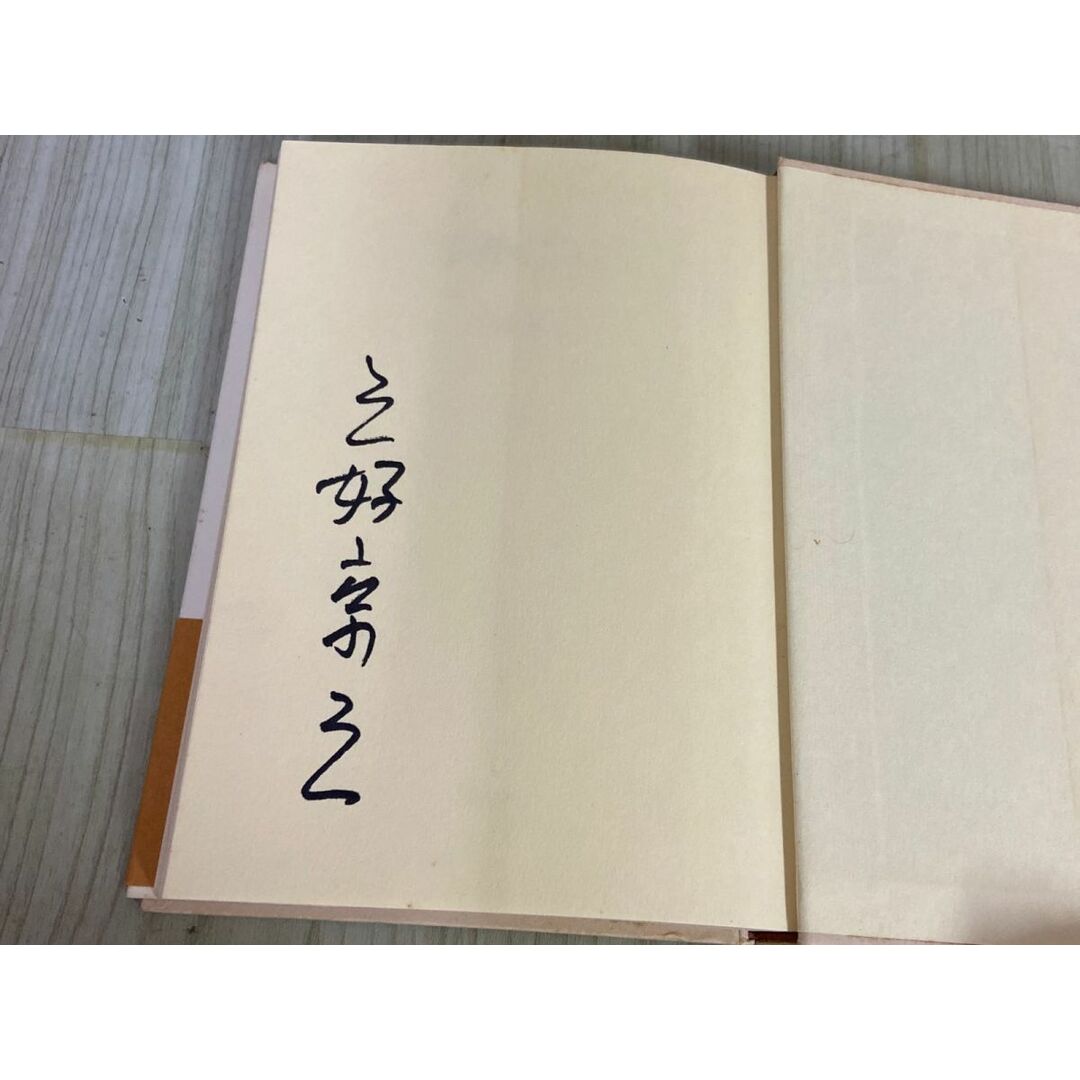 三好京三